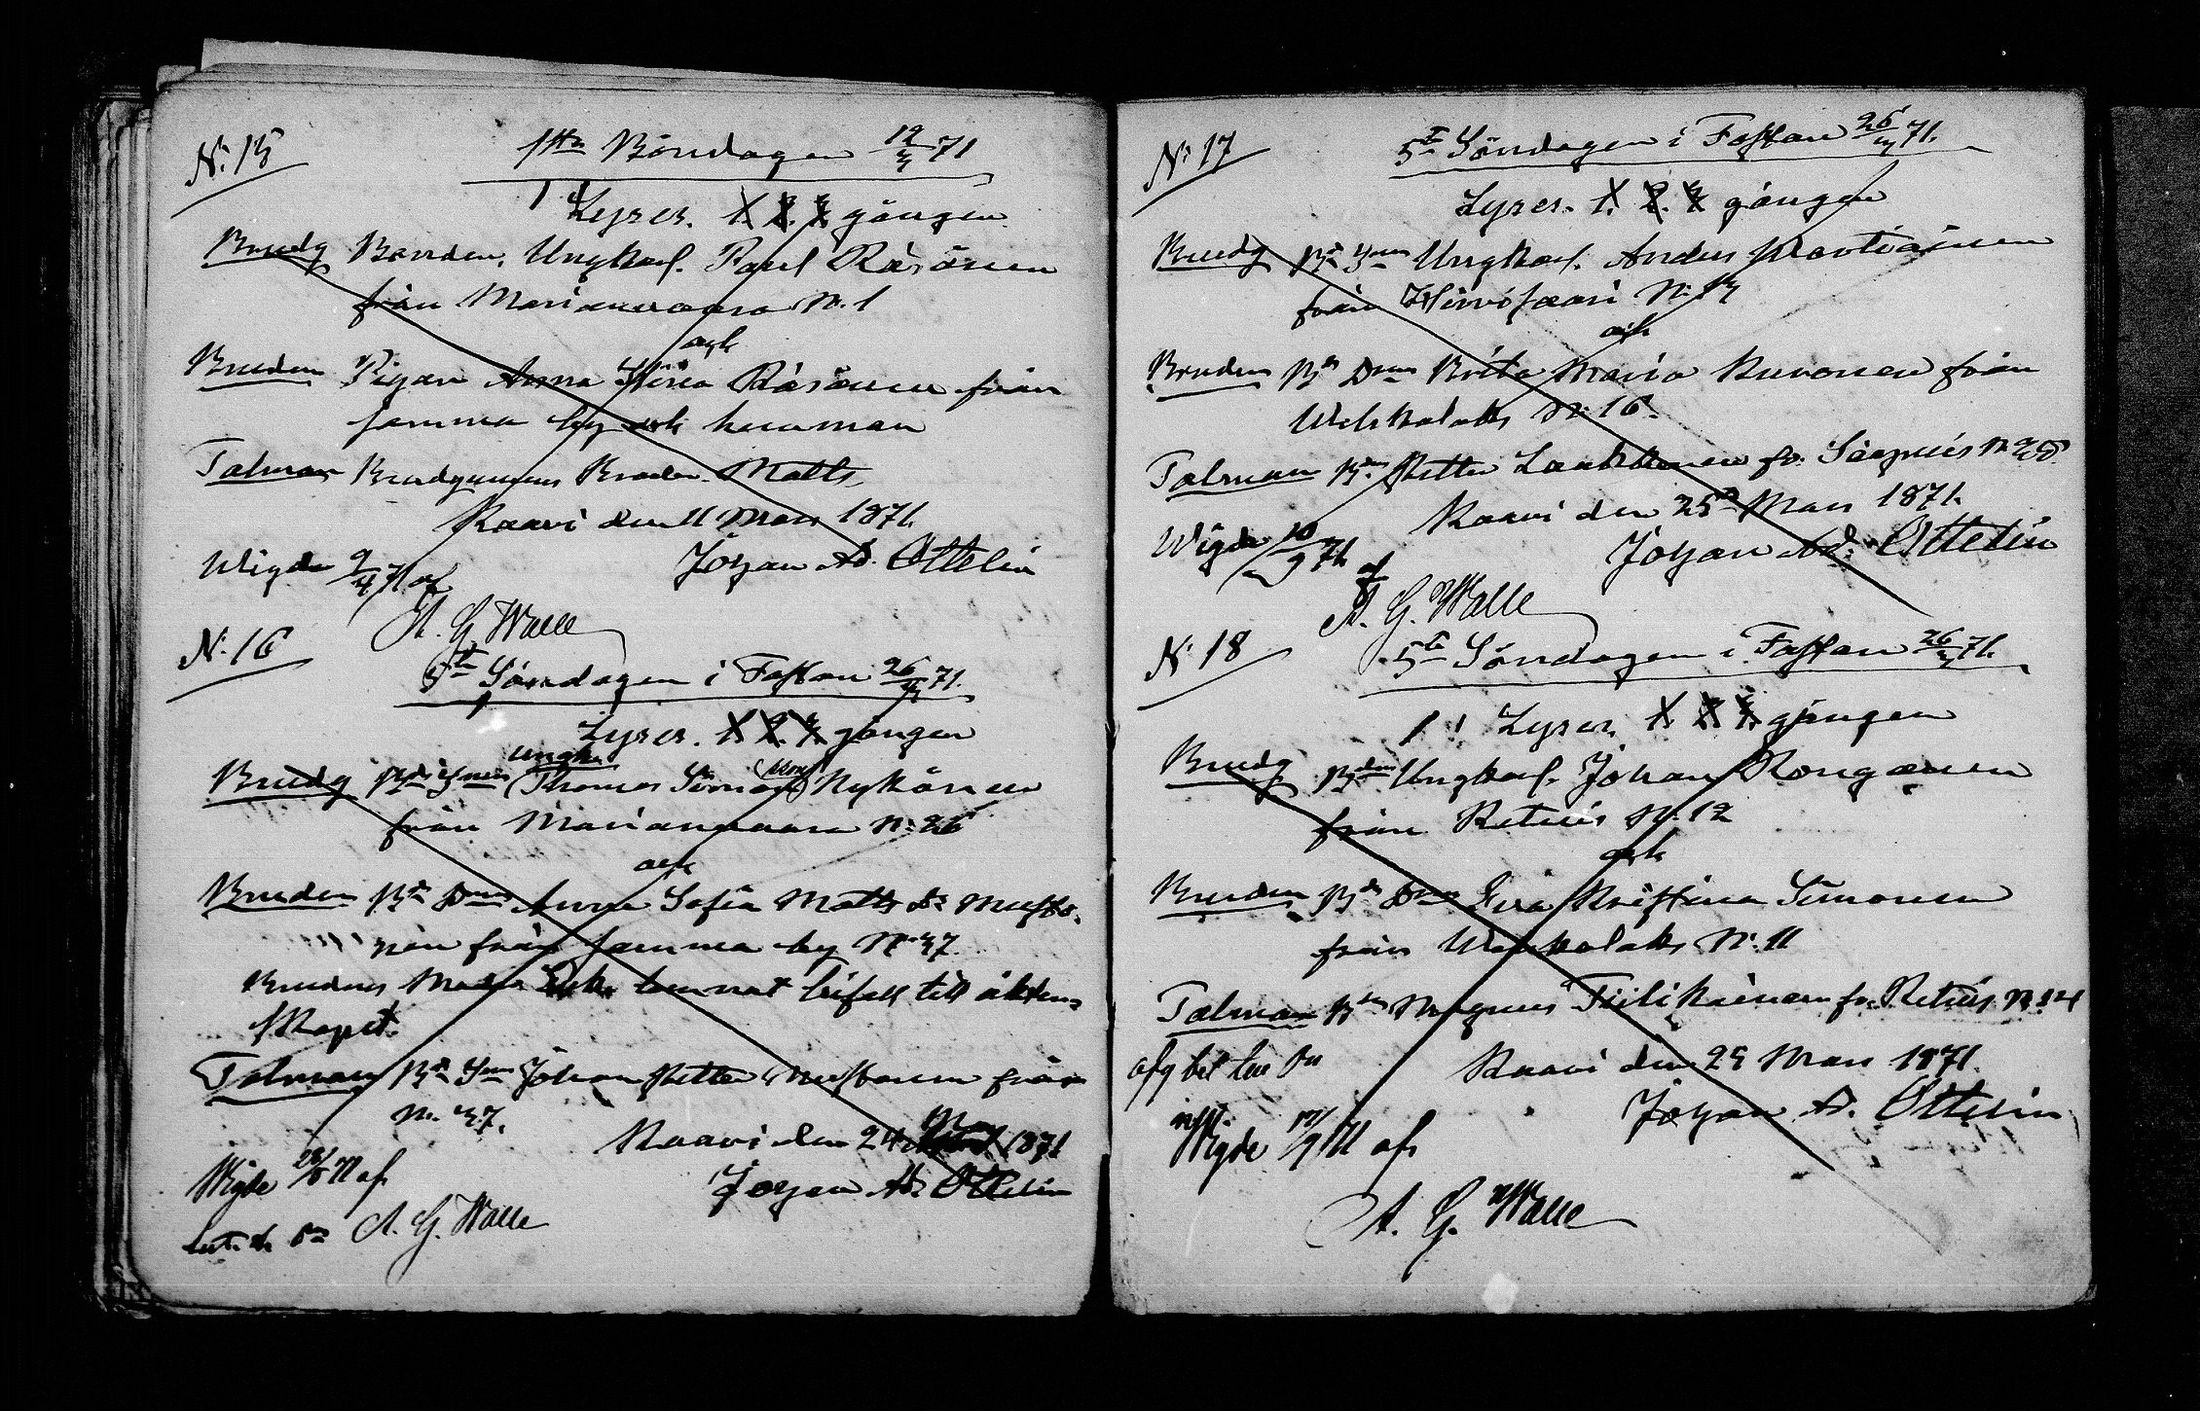 N: 15
1sta Böndagen 12/3 71
Lyses. 1. 2. 3. gången
Brudg Bonden, Ungkarl. Paul Räsönen
från Marianvaara N. 1
och
Bruden Pigan Anna Stina Räsönen från
samma by och hemman
Talman Brudgummens Broder Matts
Kaavi den 11 Mars 1871.
Johan Ad. Ottelin
Wigde 9/4 71 af
A. G. Walle
N: 16
5te Söndagen i Fastan 26/3 71.
Lyses. 1. 2. 3. gången
Ungk.
Brudg Bde Snen Thomas Nykänen
från Marianvaara N: 26
och
Bruden Bde Drn Anna Sofia Matts Dr Musto-
nen från samma by N: 37
Brudens Moder lemnat bifall till äkten-
skapet.
Talman Bde Snn Johan Petter Mustonen från
N. 37.
Kaavi den 24 Mars 1871
Johan Ad. Ottelin
Wigde 71 af
A. G. Walle
N: 17
5te Söndagen i Fastan 26/3 71.
Lyses. 1. 2. 3. gången
Brudg Bde Snn Ungkarl. Anders Martikainen
från Hirvisaari N: 13
och
Bruden Bde Drn Brita Maria Ruuonen från
N: 16.
Talman Bn. Petter Laakkonen fr. Siepuis N: 25.
Kaavi den 25 Mars 1871.
Johan Ad. Ottelin
Wigde 10/9 71. af
A. G. Walle
N: 18
5te Söndagen i Fastan 26/3 71.
Lyses. 1. 2. 3. gången
Brudg Bdn Ungkarl. Johan Rongainen
från Retuis N. 12
och
Bruden Bde Drn Eva Kristina Simonen
från N: 11
Talman Bdn Magnus Tiilikainen fr. Retuis N: 14
Kaavi den 25 Mars 1871.
Johan Ad. Ottelin
Wigde 71 af
A. G. Walle